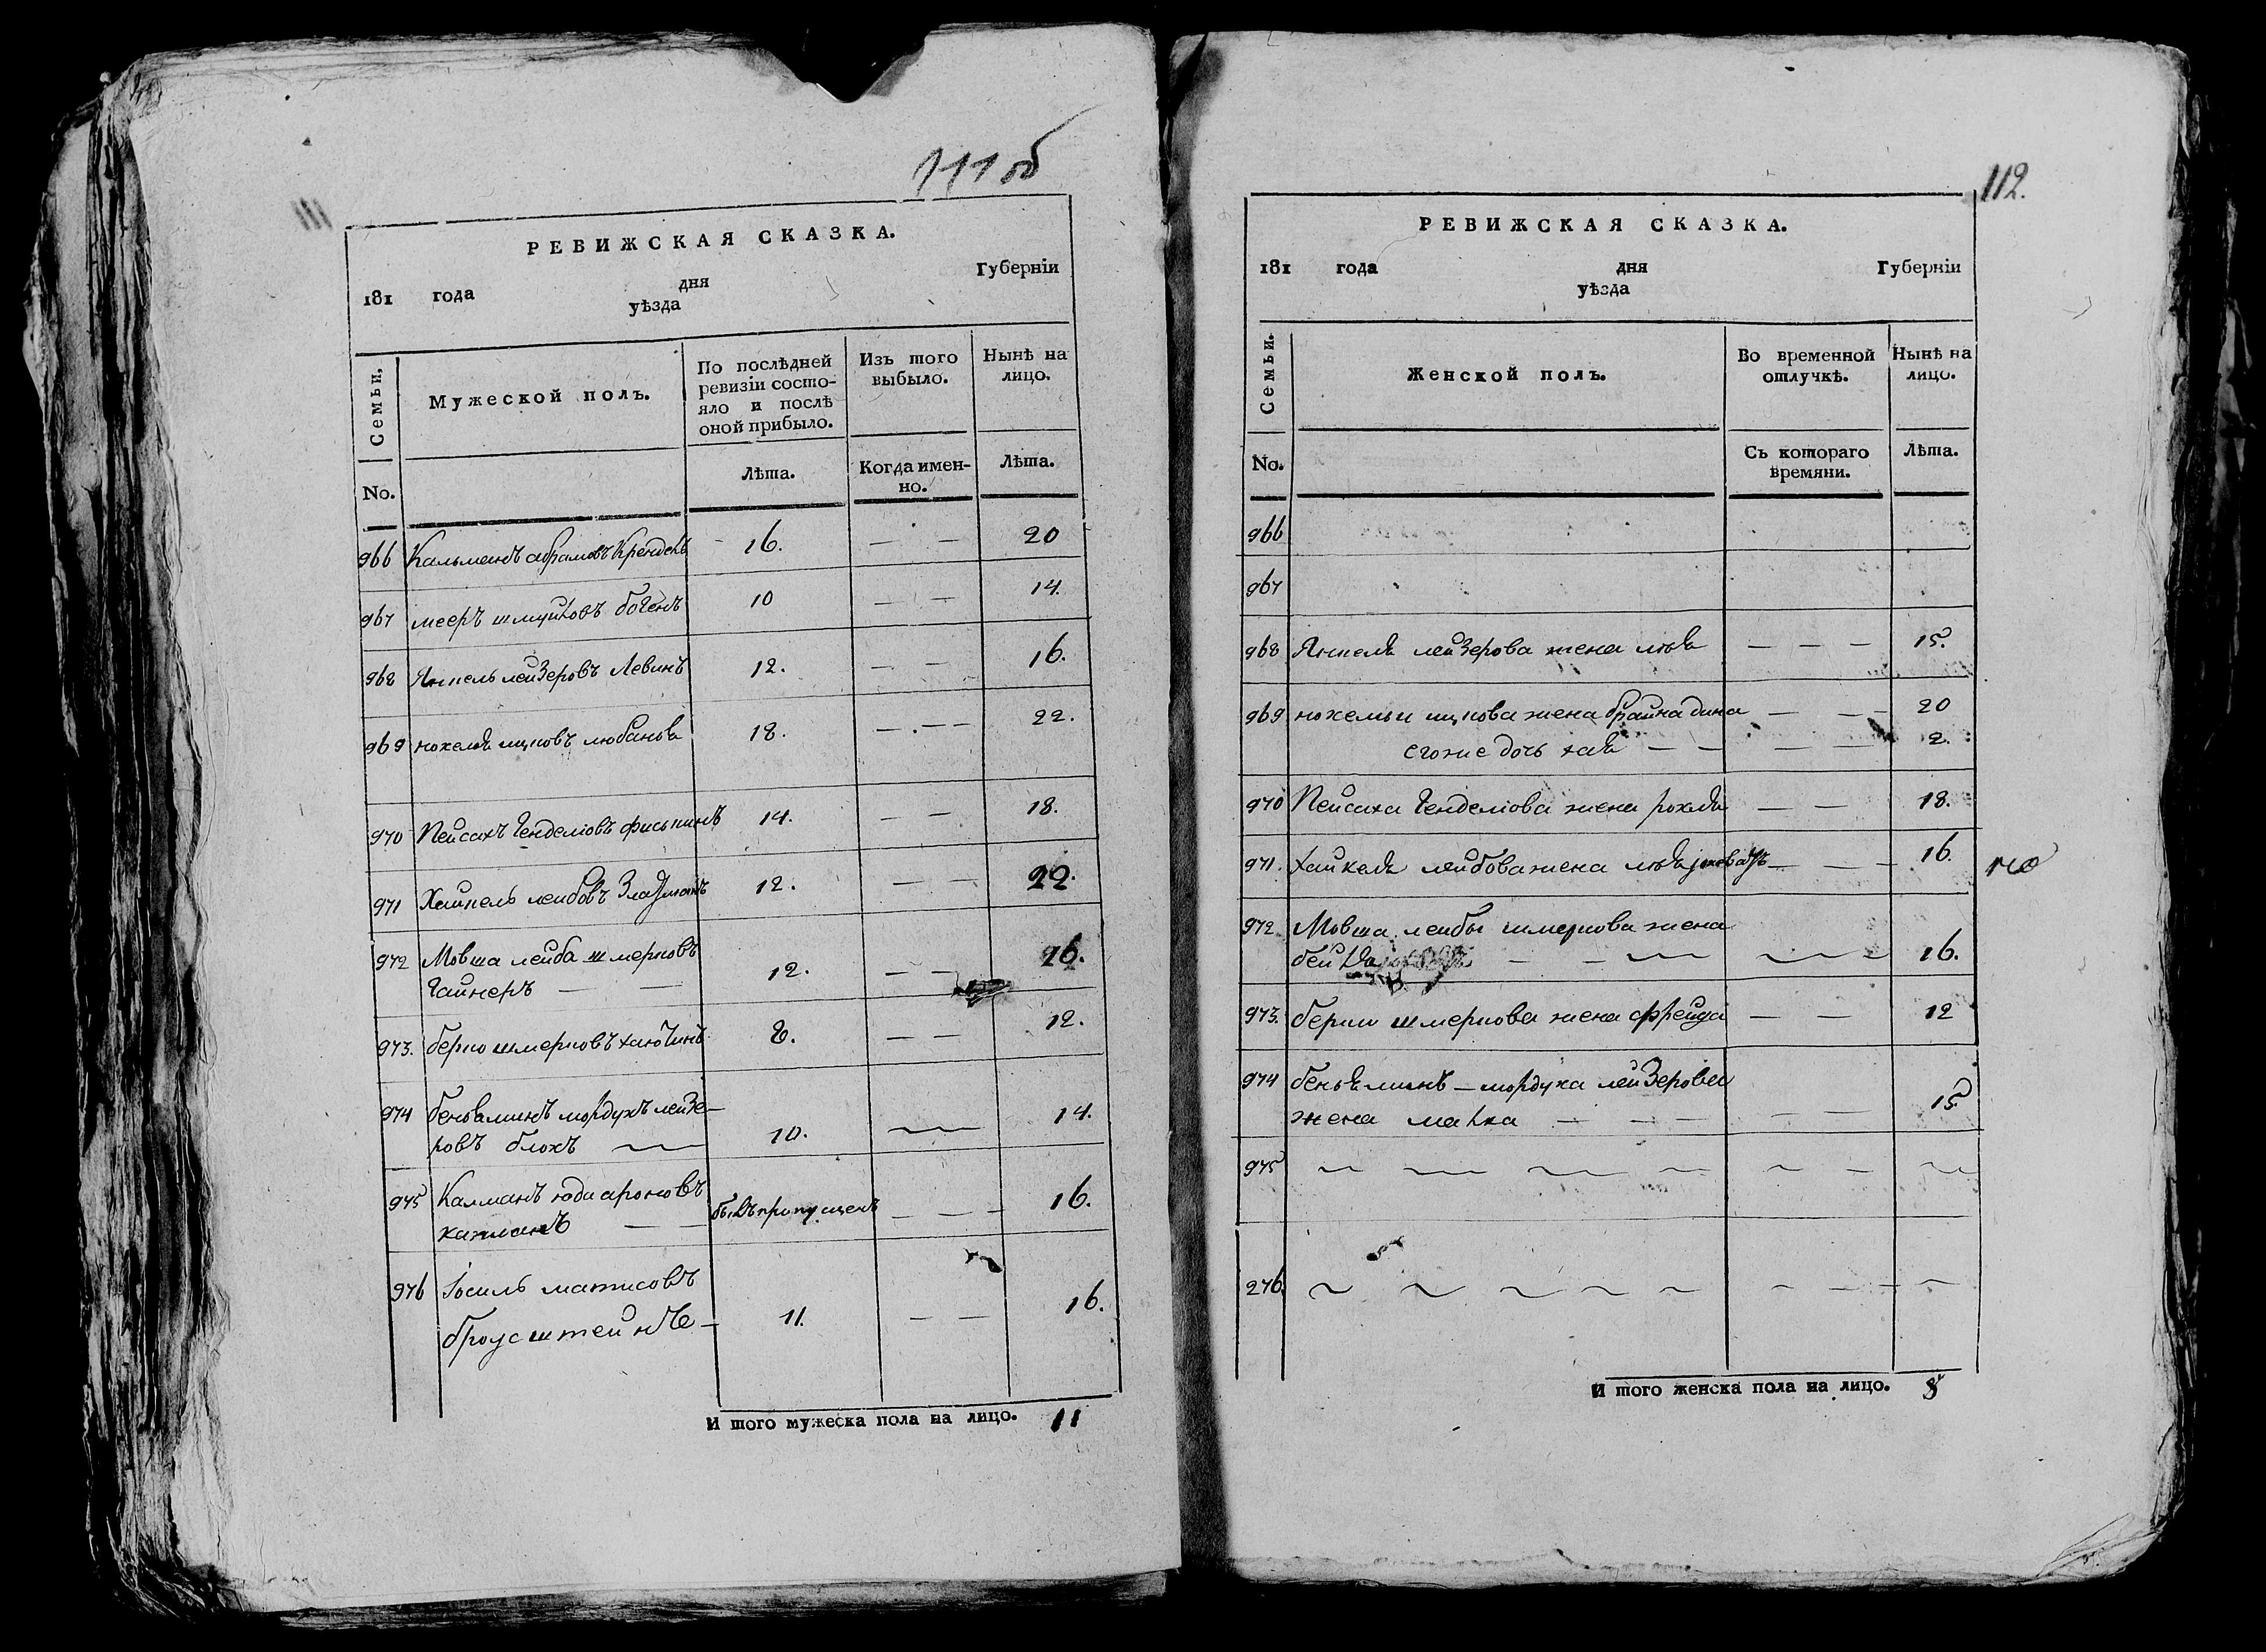 111 об
111
РЕВИЖСКАЯ СКАЗКА.
181 года дня Губерніи
уѣзда
Семьи.
Мужеской полъ.
По послѣдней ревизіи состо-
яло и послѣ
оной прибыло.
Изъ того выбыло.
Нынѣ на лицо.
No.
Лѣта.
Когда имен-
но.
Лѣта.
966 Кальманъ абрамовъ Крендель 16. — — 20
967 мееръ шмуйловъ 10 — — 14.
968 Янкель лейзеровъ Левинъ 12. — — 16.
969 ицковъ 18. — — — 22.
970 Пейсахъ Генделіовъ 14. — — 18.
971 Хайкель лейбовъ 12. — — 22.
972 Мовша лейба шмерковъ
Гайнеръ — — 12. — — 16.
973. берко шмерковъ 8. — — 12.
974 беньяминъ мордухъ лейзе-
ровъ блохъ — 10. — 14.
975 Калманъ юда ароновъ
капланъ — — былъ пропущенъ — — — 16.
976 Іосиль матисовъ
броусштейнъ — 11. — — 16.
И того мужеска пола на лицо. 11
112.
РЕВИЖСКАЯ СКАЗКА.
181 года дня Губерніи
уѣзда
Семьи.
Женской полъ.
Во временной
отлучкѣ.
Нынѣ на
лицо.
No.
Съ котораго
времяни.
Лѣта.
966
967
968 Янкеля лейзерова жена — — — 15.
969 ицкова жена брайна дина — — — 20
егоже дочь хая — — — — 2.
970 Пейсаха Генделіова жена рохля — — 18.
971. Хайкеля лейбова жена — — — 16.
972 Мовша лейбы шмеркова жена
бейля — — — — 16.
973. берки шмеркова жена фрейда — — 12
974 беньяминъ — мордуха лейзерова
жена малка — — — — 15
975 — — — — — — —
276. — — — — — — — —
И того женска пола на лицо. 8